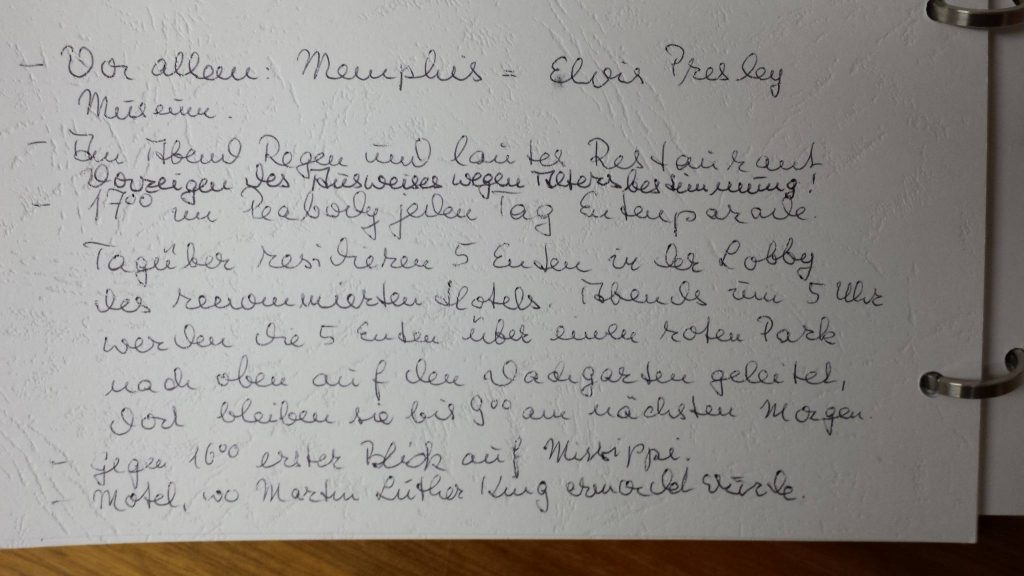 - Vor allem: Memphis = Elvis Presley
Museum.
- Am Abend Regen und lautes Restaurant
Vorzeigen des Ausweises wegen Altersbestimmung!
- 17⁰⁰ im Peabody jeden Tag Entenparade.
Tagüber residieren 5 Enten in der Lobby
des renommierten Hotels. Abends um 5 Uhr
werden die 5 Enten über einen roten Park
nach oben auf den Dachgarten geleitet,
dort bleiben sie bis 9⁰⁰ am nächsten Morgen.
- gegen 16⁰⁰ erster Blick auf Missippi.
- Motel, wo Martin Luther King ermordet wurde.